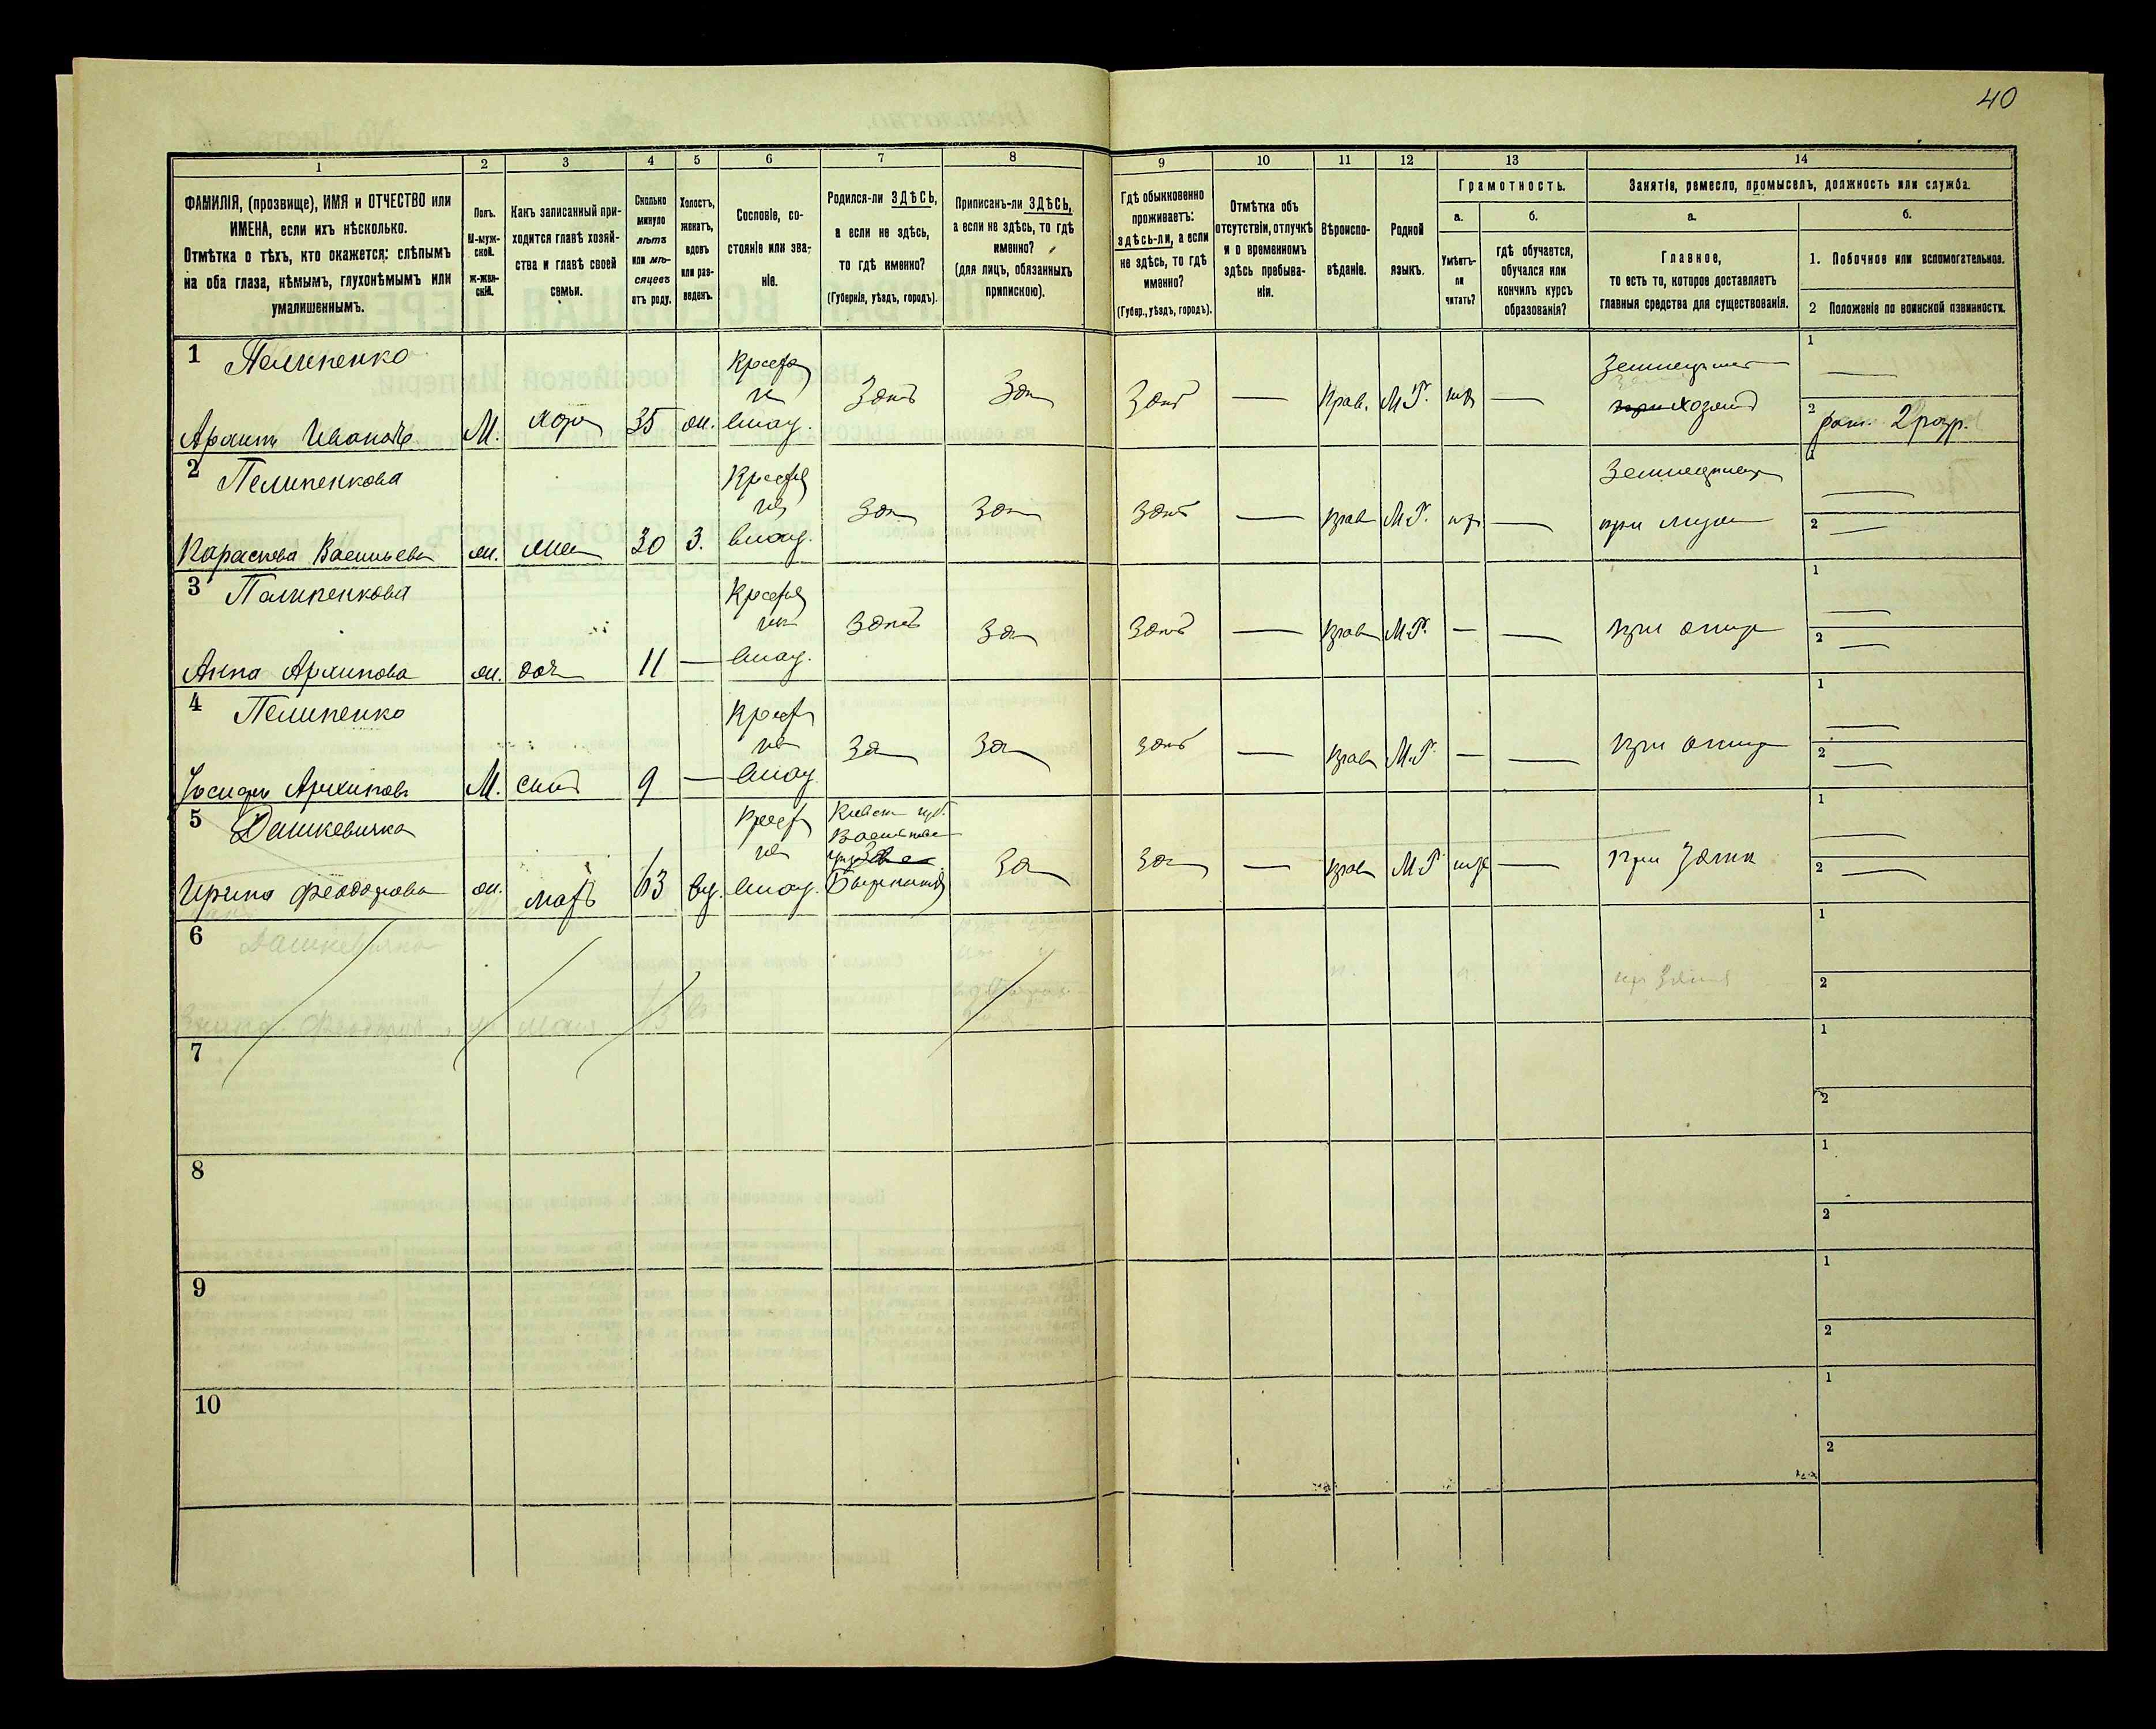 40
1
2
3
4
5
6
7
8
9
10
11
12
13
14
ФАМИЛІЯ, (прозвище), ИМЯ и ОТЧЕСТВО или
ИМЕНА, если ихъ нѣсколько.
Отмѣтка о тѣхъ, кто окажется: слѣпымъ
на оба глаза, нѣмымъ, глухонѣмымъ или
умалишеннымъ.
Полъ.
М-муж-
ской.
ж-жен-
скій.
Какъ записанный при-
ходится главѣ хозяй-
ства и главѣ своей
семьи.
Сколько
минуло
лѣтъ
или мѣ-
сяцевъ
отъ роду.
Холостъ,
женатъ,
вдовъ
или раз-
веденъ.
Сословіе, со-
стояніе или зва-
ніе.
Родился-ли ЗДѢСЬ,
а если не здѣсь,
то гдѣ именно?
(Губернія, уѣздъ, городъ).
Приписанъ-ли ЗДѢСЬ,
а если не здѣсь, то гдѣ
именно?
(для лицъ, обязанныхъ
припискою).
Гдѣ обыкновенно
проживаетъ:
здѣсь-ли, а если
не здѣсь, то гдѣ
именно?
(Губер., уѣздъ, городъ).
Отмѣтка объ
отсутствіи, отлучкѣ
и о временномъ
здѣсь пребыва-
ніи.
Вѣроиспо-
вѣданіе.
Родной
языкъ.
Грамотность.
а.
б.
Умѣетъ-
ли
читать?
гдѣ обучается,
обучался или
кончилъ курсъ
образованія?
Занятіе, ремесло, промыселъ, должность или служба.
а.
б.
Главное,
то есть то, которое доставляетъ
главныя средства для существованія.
1. Побочное или вспомогательное.
2 Положеніе по воинской повинности.
1 Пелипенко
Архипъ Ивановъ М. хозя 35 ж.
Здѣсь Зд Здѣсь — Прав. М.Р. —
хозяинъ
1
2 рат. 2 разр.
2 Пелипенкова
Параскева Васильева ж. жена 30 З.
Зд Зд Здѣсь — прав М.Р. —
при мужѣ
1
2
3 Пелипенкова
Анна Архипова ж. доч 11 —
Здѣсь Зд Здѣсь — прав М.Р. — —
при отцѣ
1
2
4 Пелипенко
Іосифъ Архиповъ М. сынъ 9 —
Зд Зд Здѣсь — прав М.Р. — —
при отцѣ
1
2
5 Дашкевичка
Ирина Феодорова ж. мать 63 вд.
Кіевск губ.
Васильков
Зд Зд — прав М.Р. —
при зятѣ
1
2
6 Дашкевичка
63
1
2
7
1
2
8
1
2
9
1
2
10
1
2